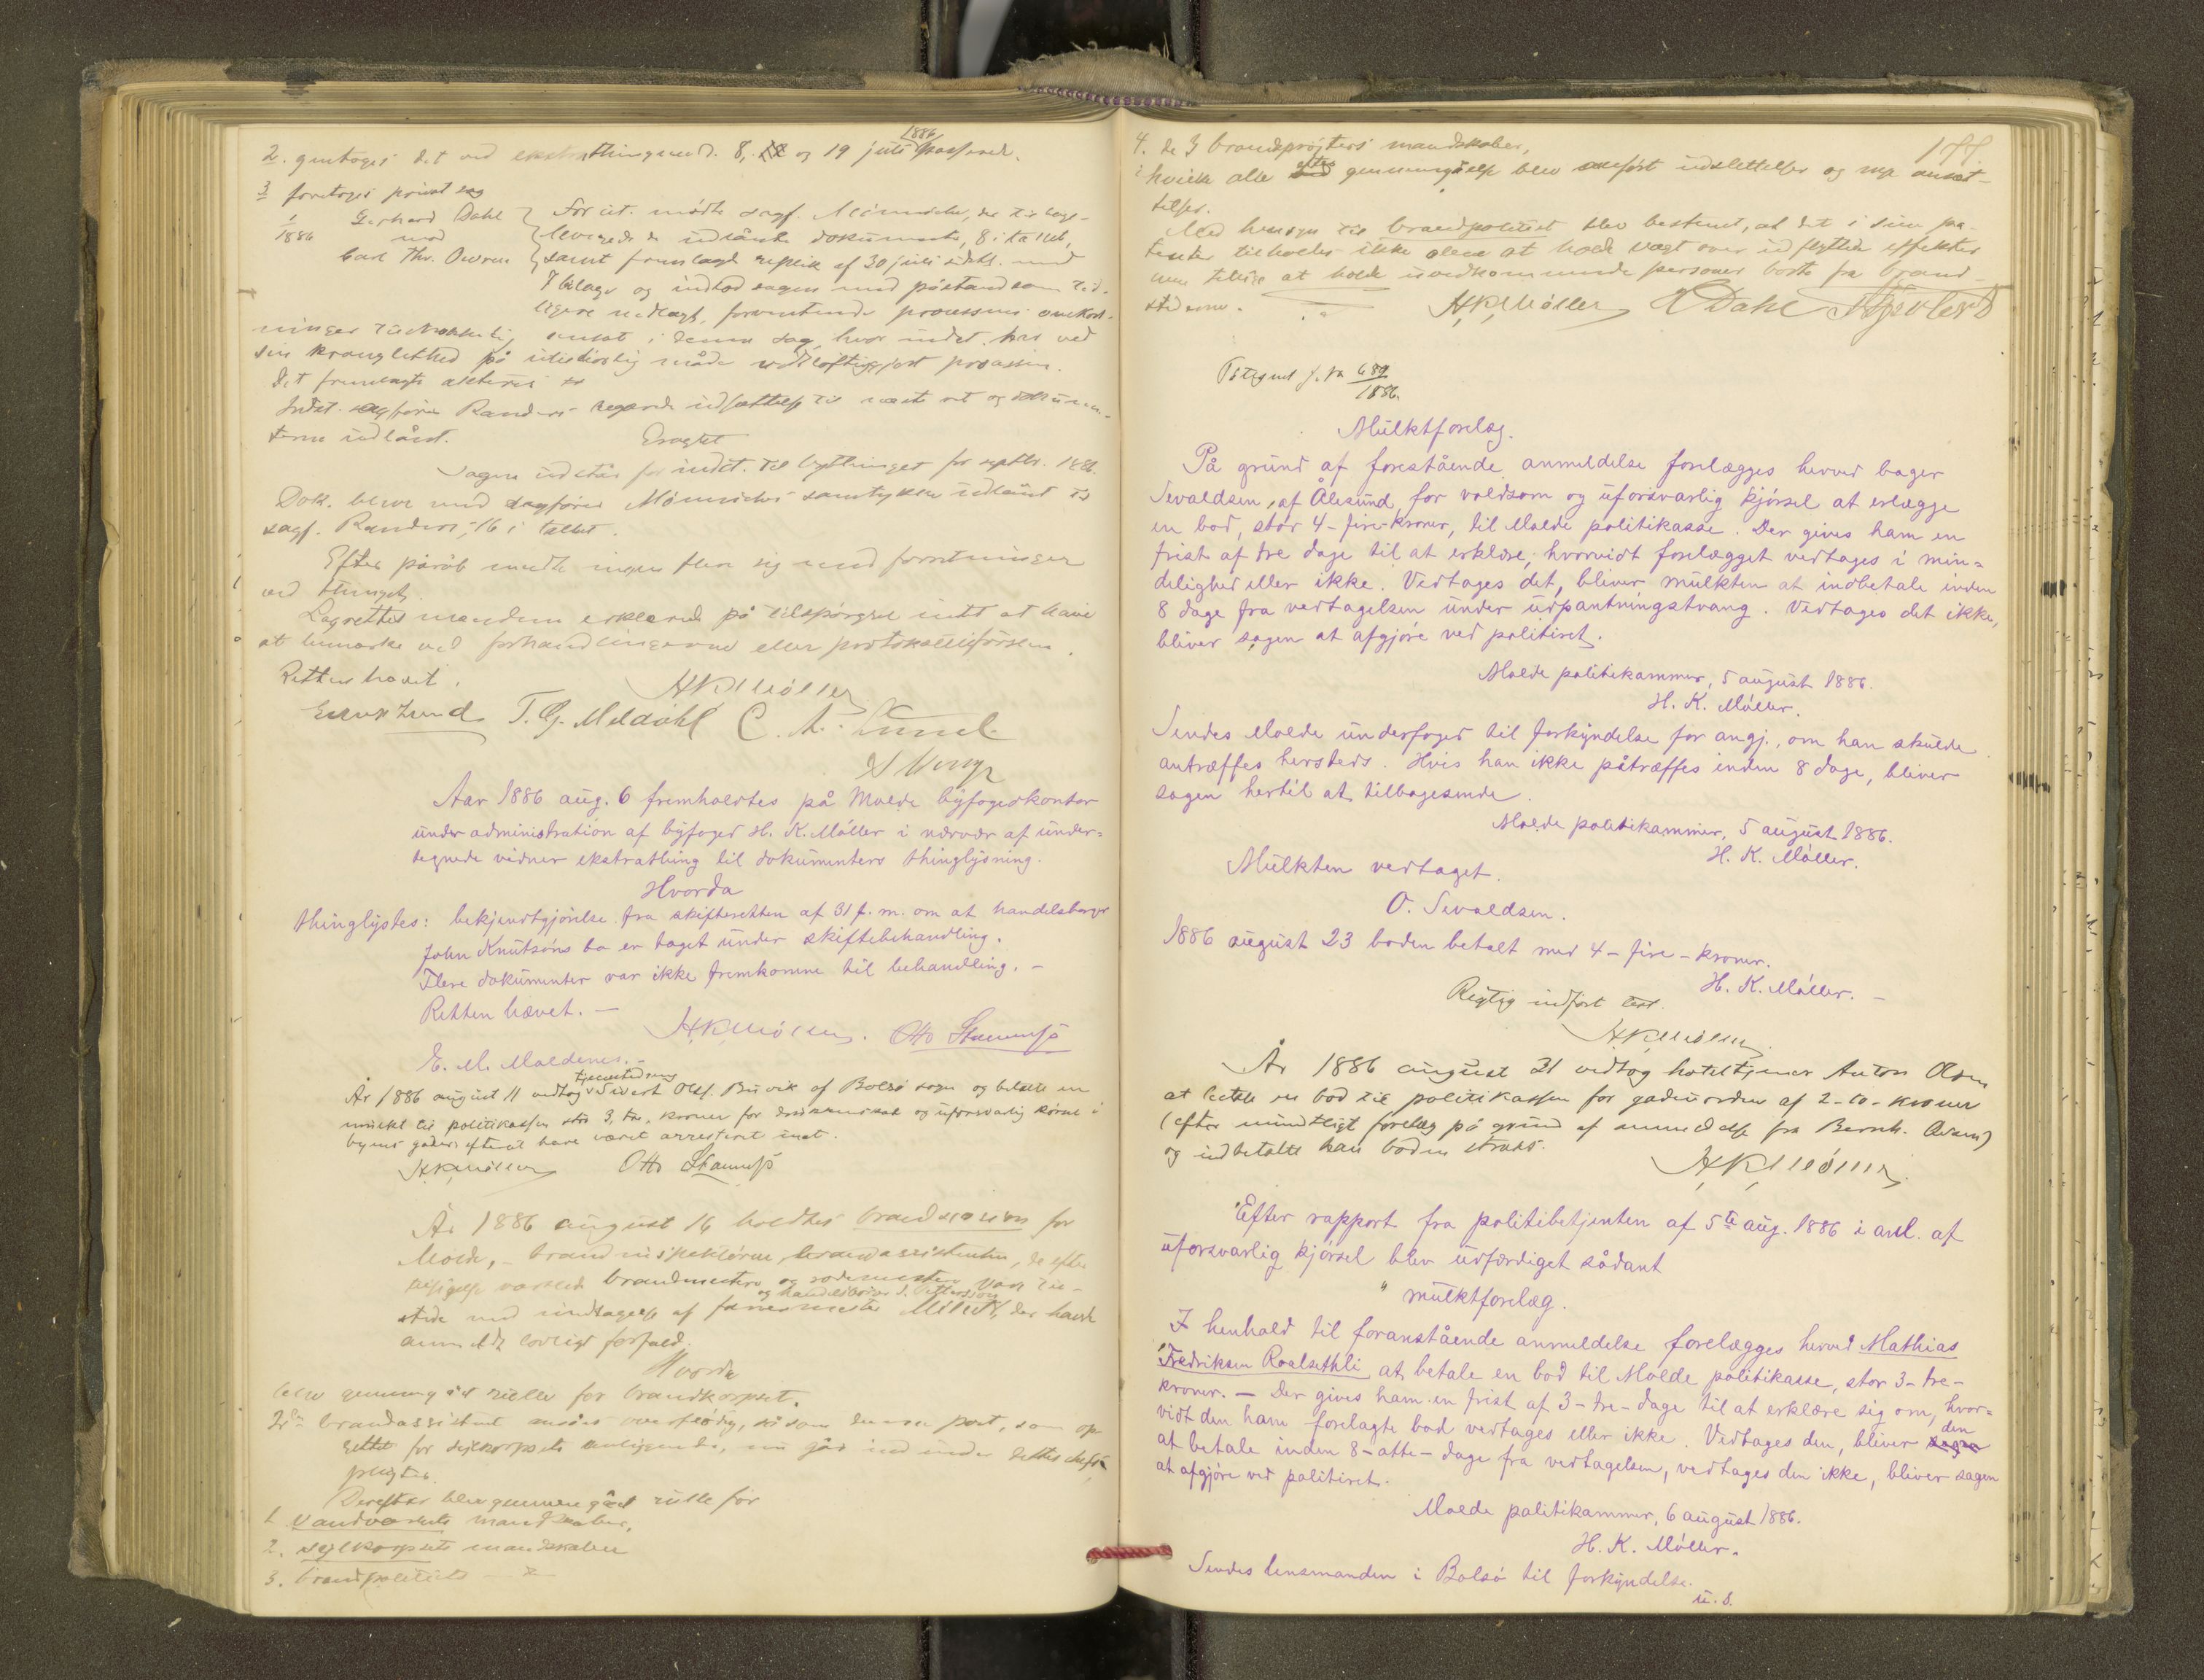 2. gentoges det ved ekstrathingene d. 8, og 19 juli 1886 passerede.
3 foretoges privat sag
1/1886 Gerhard Dahl
mod
Carl Thr. Owren
For cit. mødte sagf. Mönniche, der tilbage-
leverede de udlånte dokumenter, 8 i tallet,
samt fremlagde replik af 30 juli sidstl. med
7 bilage og indlod sagen med påstand som tid-
ligere nedlagt, forventende processens omkost-
ninger tilstrækkelig ansat i denne sag, hvor indst. har ved
sin kranglethed på utilbørlig måde vidtløftiggjort processen.
Det fremlagte akteres
Indst. sagfører Randers begærede udsættelse til næste ret og dokumen-
terne udlånt.
Eragtet
Sagen udstår for indst. til bythinget for septbr. 1886.
Dok. bleve med sagfører Mönniches samtykke udlånt til
sagf. Randers, 16 i tallet.
Efter påråb meldte ingen flere sig med forretninger
ved thinget.
Lagrettesmændene erklærede på tilspørgsel intet at have
at bemærke ved forhandlingerne eller protokollførslen.
Retten hævet.
HKMöller
Lund T. G. Meldahl C. A.
Aar 1886 aug. 6 fremholdtes på Molde byfogedkontor
under administration af byfoged H. K. Möller i nærvær af under-
tegnede vidner ekstrathing til dokumenters thinglysning.
Hvorda
thinglystes: bekjendtgjörelse fra skifteretten af 31 f. m. om at handelsborger
John Knutsöns bo er taget under skiftebehandling.
Flere dokumenter var ikke fremkomne til behandling. –
Retten hævet. –
HKMöller. Otto
E. M. Moldenes. –
År 1886 august 11 vedtog tjenestedreng Sivert Olsf. Buvik af Bolsö sogn og betalte en
mulkt til politikassen stor 3, tre, kroner for drukkenskab og uforsvarlig körsel i
byens gader efterat have været arresteret inat.
HKMöller Otto
År 1886 august 16 holdtes brandsession for
Molde, – brandinspektören, brandassistenten, de efter
tilsigelse varslede brandmestre og rodemestre var til-
stede med undtagelse af farvermester og handelsborger J. Pettersson, der havde
anmeldt lovligt forfald.
Hvorda
blev gennemgået rulle for brandkorpset.
2den brandassistent ansåes overflödig, såsom denne post, som op-
rettet for sejlkorpsets anliggende, nu går ind under dettes chefs
pligter.
Derefter blev gennemgået rulle for
1. vandværkets mandskaber,
2. sejlkorpsets mandskaber
3. brandpolitiets –"–
4. de 3 brandsprøjters mandskaber,
i hvilke alle efter gennemgåelse blev anført udslettelser og nye ansæt-
telser.
Med hensyn til brandpolitiet blev bestemt, at det i sine pa-
tenter tilholdes ikke alene at holde vagt over udflyttede effekter
men tillige at holde uvedkommende personer borte fra brand-
stederne.
HKMöller Dahl
177
Påtegnet j. no 689/1886.
Mulktforelæg.
På grund af forestående anmeldelse forelægges herved bager
Sevaldsen, af Ålesund, for voldsom og uforsvarlig kjörsel at erlægge
en bod, stor 4 – fire – kroner, til Molde politikasse. Der gives ham en
frist af tre dage til at erklære, hvorvidt forelægget vedtages i min-
delighed eller ikke. Vedtages det, bliver mulkten at indbetale inden
8 dage fra vedtagelsen under udpantningstvang. Vedtages det ikke,
bliver sagen at afgjöre ved politiret.
Molde politikammer, 5 august 1886.
H. K. Möller.
Sendes Molde underfoged til forkyndelse for angj., om han skulde
antræffes hersteds. Hvis han ikke påtræffes inden 8 dage, bliver
sagen hertil at tilbagesende.
Molde politikammer, 5 august 1886.
H. K. Möller.
Mulkten vedtaget.
O. Sevaldsen.
1886 august 23 boden betalt med 4 – fire – kroner.
H. K. Möller. –
Rigtig indført test.
HKMöller
År 1886 august 31 vedtog hoteltjener Anton Olsen
at betale en bod til politikassen for gadeuorden af 2 – to – kroner
(efter mundtligt forelæg på grund af anmeldelse fra Bernh. Owren)
og indbetalte han boden straks.
HKMöller.
Efter rapport fra politibetjenten af 5te aug. 1886 i anl. af
uforsvarlig kjörsel blev udfærdiget sådant
" mulktforelæg.
I henhold til foranstående anmeldelse forelægges herved Mathias
Fredriksen Roalsethli at betale en bod til Molde politikasse, stor 3 – tre –
kroner. – Der gives ham en frist af 3 – tre – dage til at erklære sig om, hvor-
vidt den ham forelagte bod vedtages eller ikke. Vedtages den, bliver den
at betale inden 8 – otte – dage fra vedtagelsen, vedtages den ikke, bliver sagen
at afgjöre ved politiret.
Molde politikammer, 6 august 1886.
H. K. Möller.
Sendes lensmanden i Bolsö til forkyndelse.
u. s.